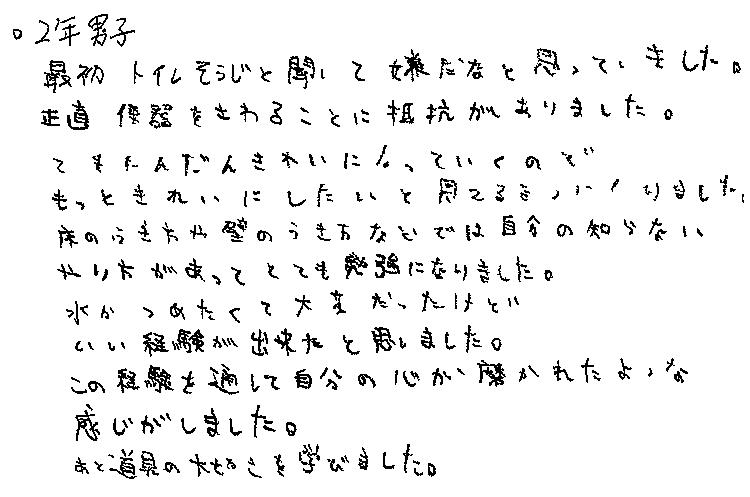 ○ 2年男子
最初 トイレそうじと聞いて嫌だなと思っていました。
正直 便器をさわることに抵抗がありました。
でもだんだんきれいになっていくので
もっときれいにしたいと思えるようになりました。
床のふき方や壁のふき方などでは自分の知らない
やり方があってとても勉強になりました。
水がつめたくて大変だったけど
いい経験が出来たと思いました。
この経験を通して自分の心が磨かれたような
感じがしました。
あと道具の大切さを学びました。